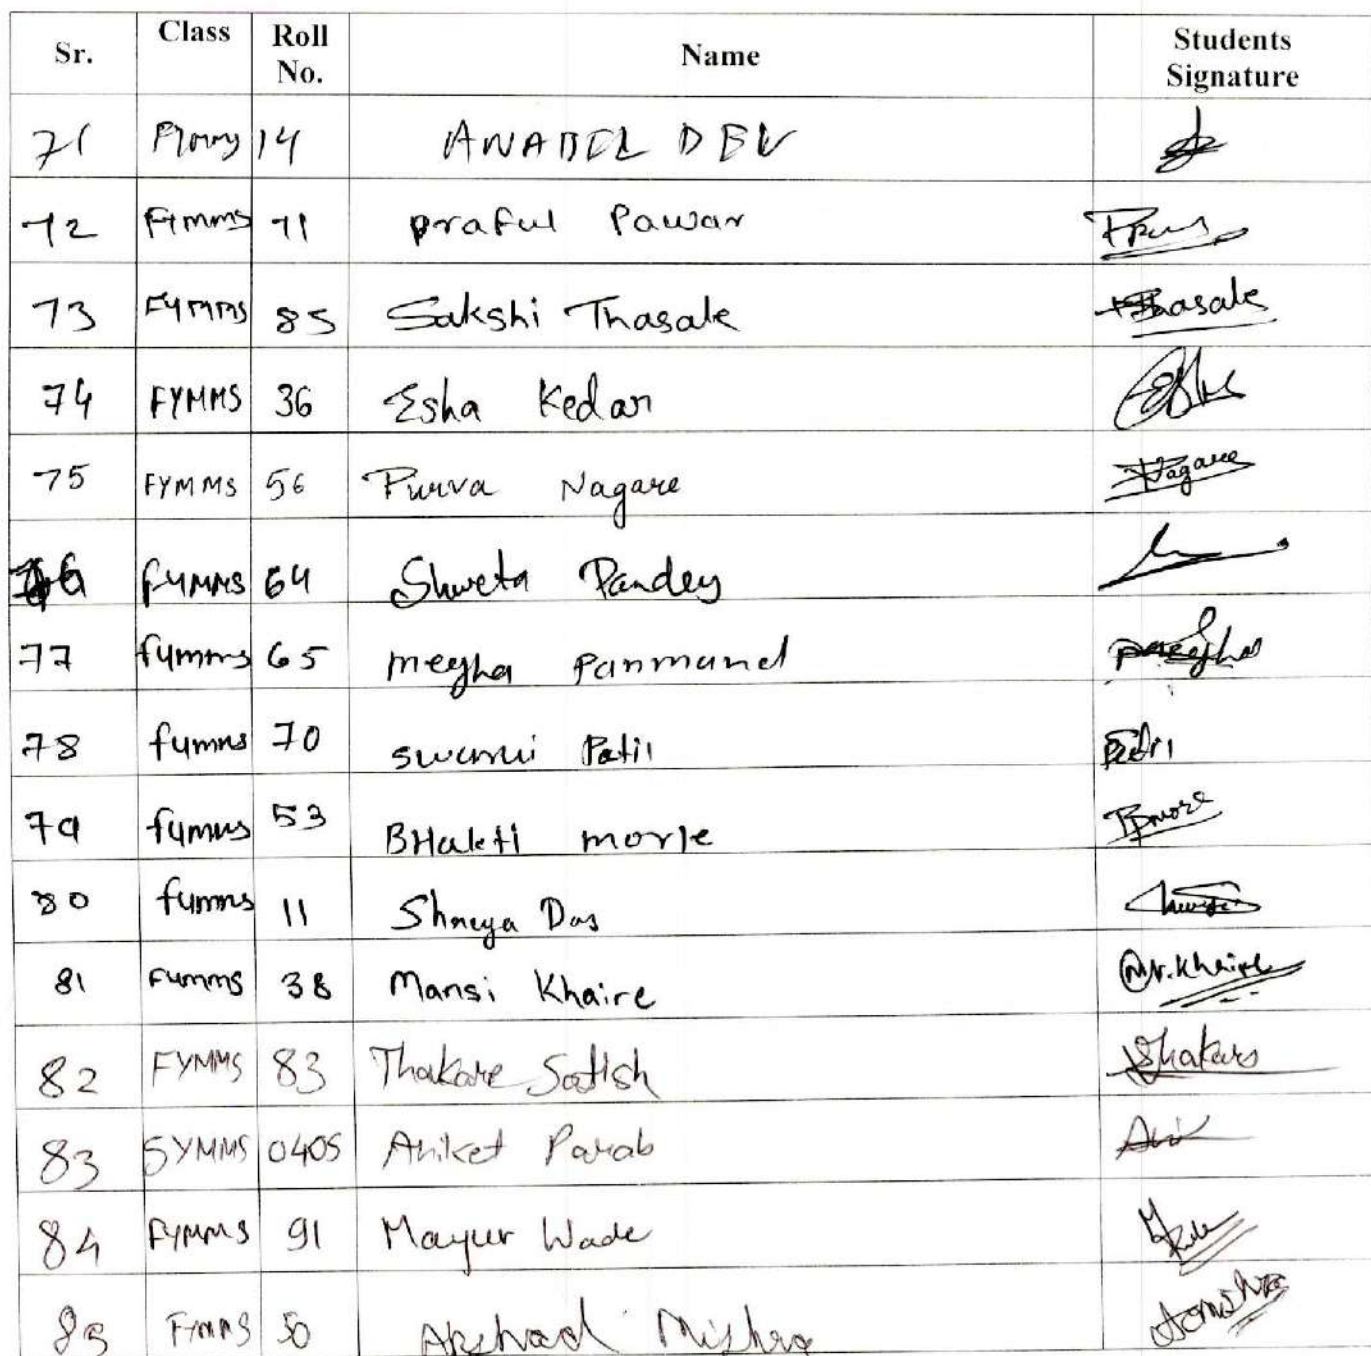 Sr. Class Roll No. Name Students Signature
71 14 ANABEL DEV
72 FYmms 71 praful Pawar
73 FYMMS 85 Sakshi Thasale Thasale
74 FYMMS 36 Esha Kedar
75 FYMMS 56 Purva Nagare Nagare
76 fyMMS 64 Shweta Pandey
77 fymms 65 megha Panmand megha
78 fymms 70 swarui Patil Patil
79 fymms 53 BHakti more Bmore
80 fymms 11 Shreya Das
81 Fymms 38 Mansi Khaire M.V.Khaire
82 FYMMS 83 Thakare Satish Thakare
83 SYMMS 0405 Aniket Parab
84 FYMMS 91 Mayur Wade
85 FYMMS 50 Akshad Mishra